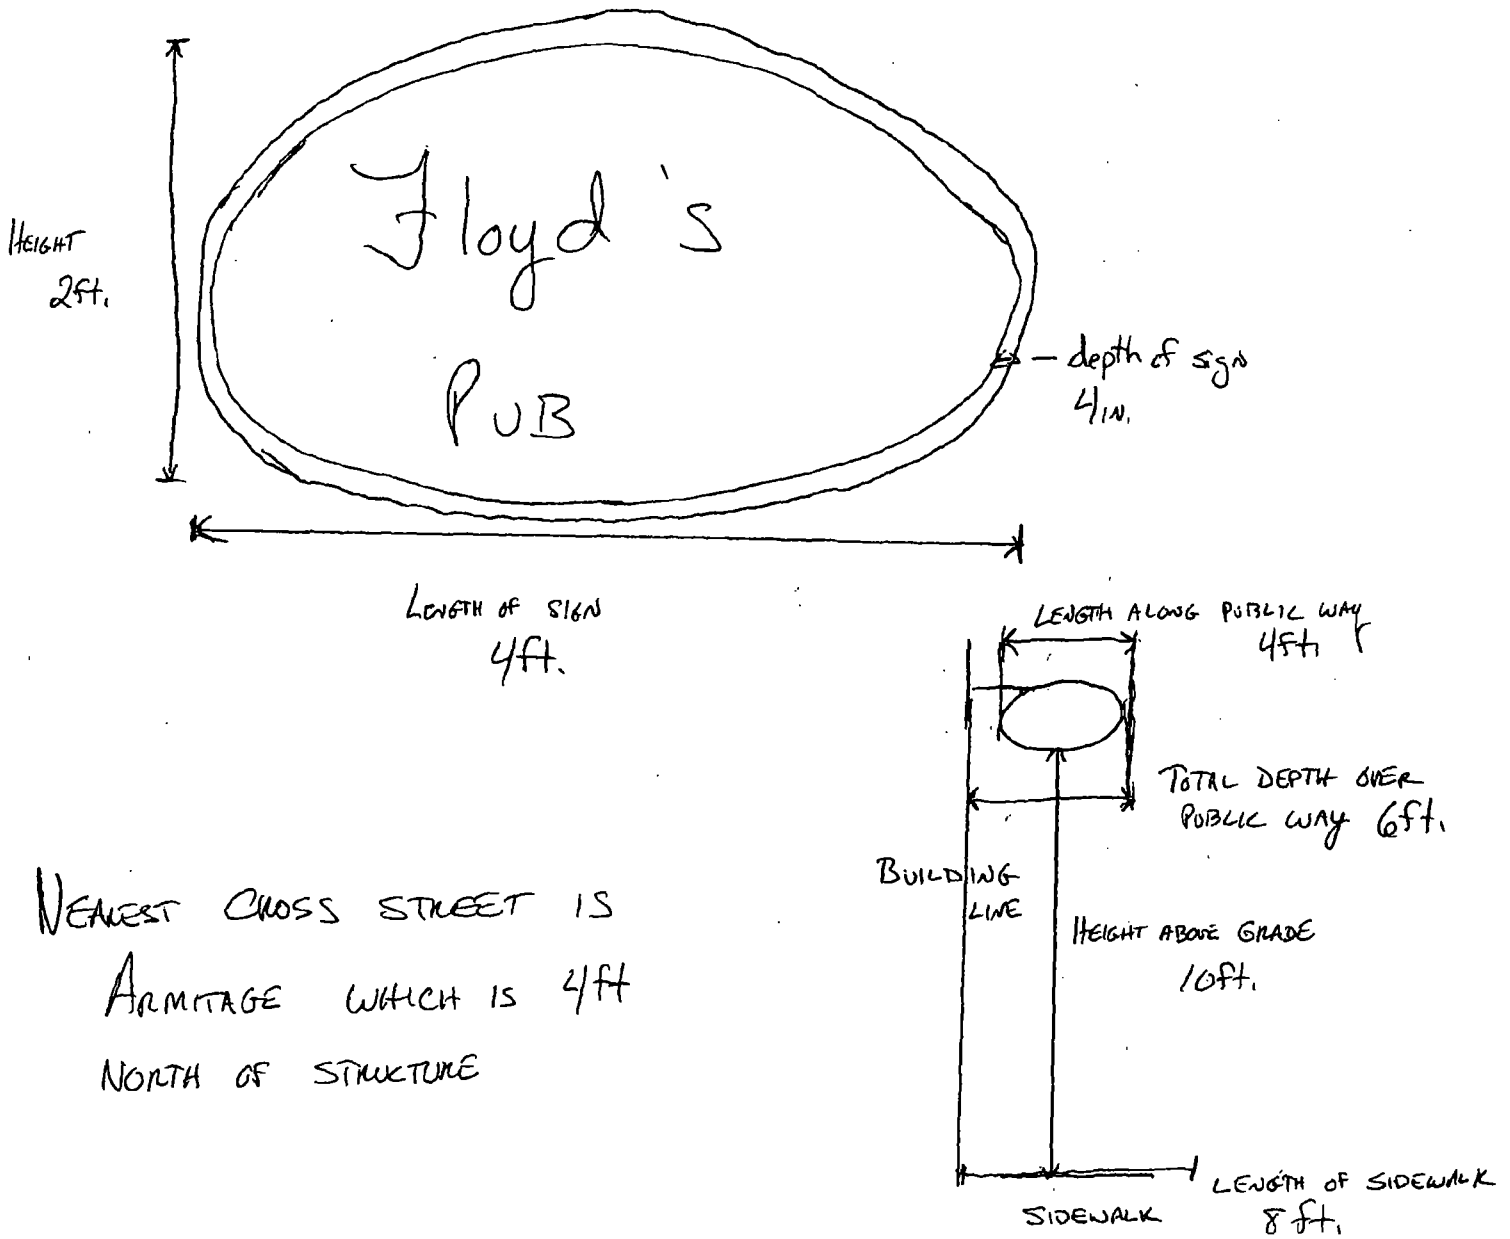 Floyd's
PUB
HEIGHT
2ft.
depth of sign
4IN.
LENGTH OF SIGN
4ft.
LENGTH ALONG PUBLIC WAY
4ft.
TOTAL DEPTH OVER
PUBLIC WAY 6ft.
BUILDING
LINE
HEIGHT ABOVE GRADE
10ft.
NEAREST CROSS STREET IS
ARMITAGE WHICH IS 4ft
NORTH OF STRUCTURE
LENGTH OF SIDEWALK
8ft.
SIDEWALK